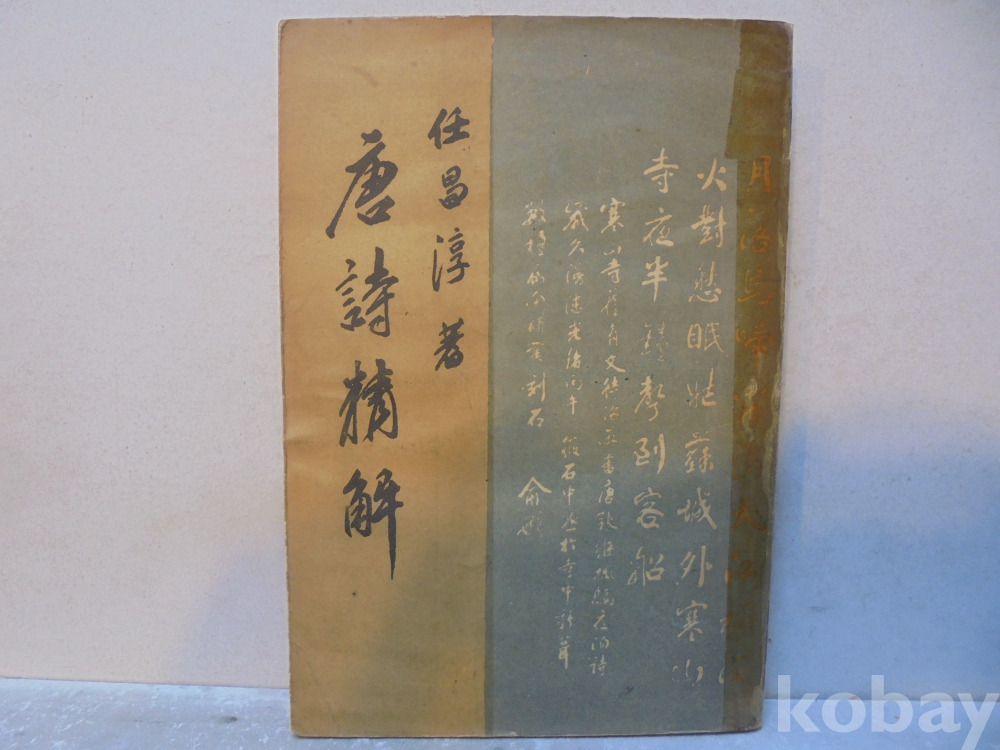 月落烏啼霜滿天江楓漁
火對愁眠姑蘇城外寒山
寺夜半鍾聲到客船
寒山寺舊有文待詔所書唐張繼楓橋夜泊詩
歲久漫漶光緒丙午 筱石中丞於寺中新葺
數楹屬余補書刻石 俞樾
任昌淳 著
唐詩精解
kobay